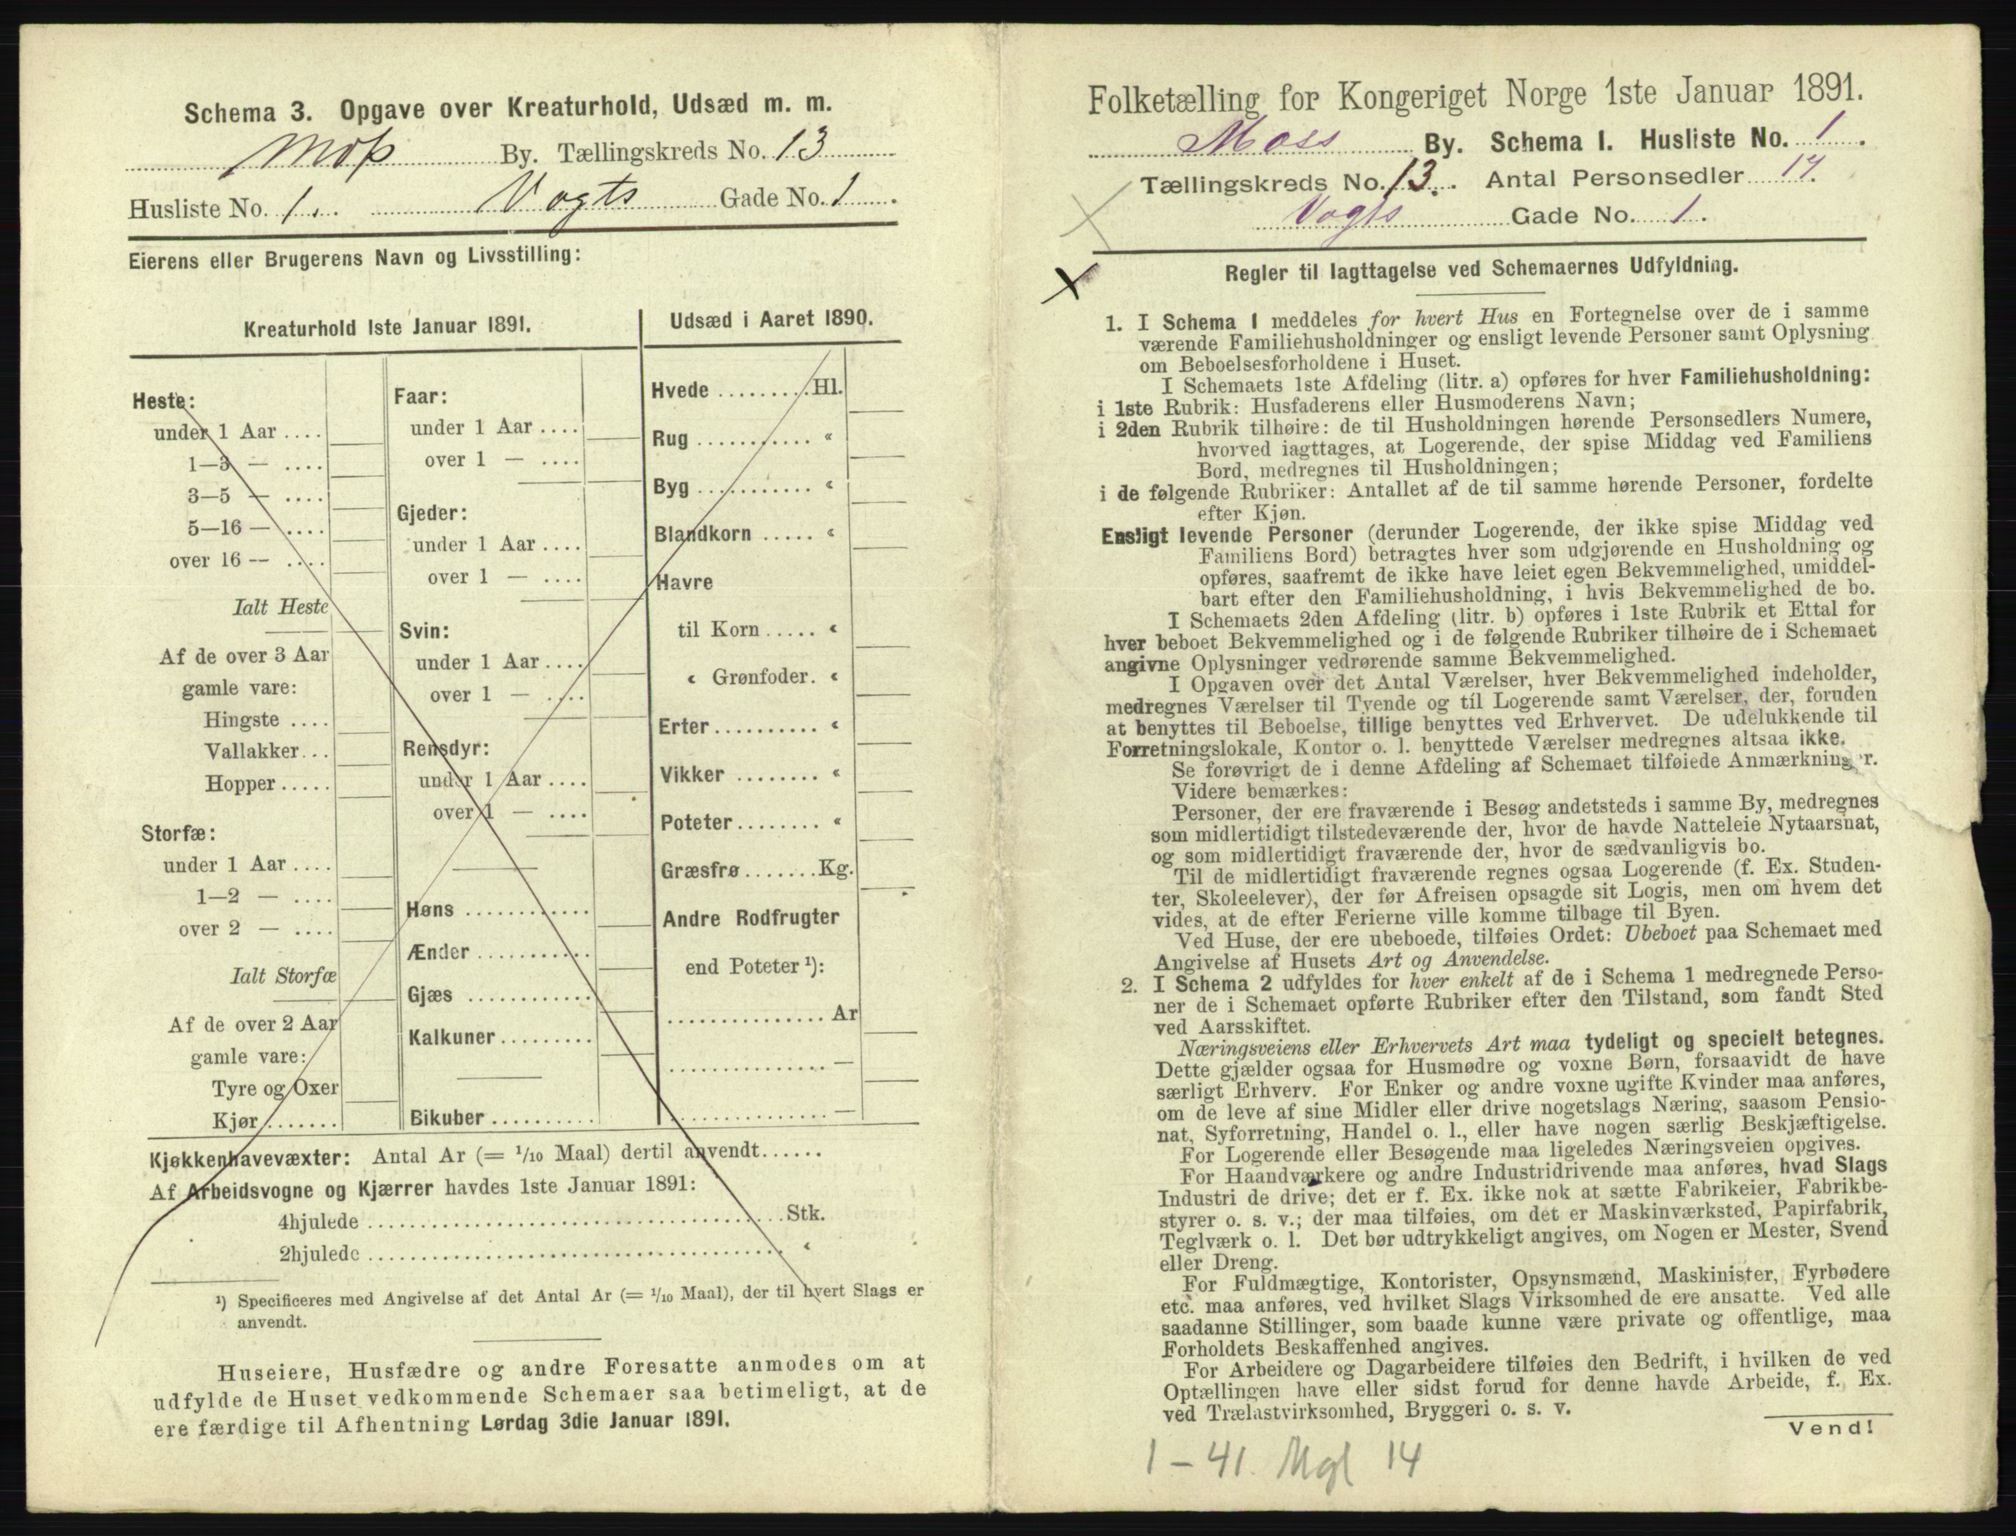 Schema 3. Opgave over Kreaturhold, Udsæd m. m.
Moss By. Tællingskreds No. 13
Husliste No. 1. Vogts Gade No. 1.
Eierens eller Brugerens Navn og Livsstilling:
Kreaturhold 1ste Januar 1891.
Heste:
under 1 Aar ....
1—3 — ....
3—5 — ....
5—16 — ....
over 16 — ....
Ialt Heste
Af de over 3 Aar
gamle vare:
Hingste ....
Vallakker...
Hopper.....
Storfæ:
under 1 Aar ....
1—2 — ....
over 2 — ....
Ialt Storfæ
Af de over 2 Aar
gamle vare:
Tyre og Oxer
Kjør.......
Faar:
under 1 Aar ....
over 1 — ....
Gjeder:
under 1 Aar ....
over 1 — ....
Svin:
under 1 Aar ....
over 1 — ....
Rensdyr:
under 1 Aar ....
over 1 — ....
Høns ............
Ænder ...........
Gjæs ............
Kalkuner.........
Bikuber ..........
Udsæd i Aaret 1890.
Hvede .........Hl.
Rug ........... «
Byg ........... «
Blandkorn ..... «
Havre
til Korn ..... «
« Grønfoder. «
Erter .......... «
Vikker ........ «
Poteter........ «
Græsfrø.......Kg.
Andre Rodfrugter
end Poteter ¹):
............... Ar
............... —
............... —
Kjøkkenhavevæxter: Antal Ar (= 1/10 Maal) dertil anvendt......
Af Arbeidsvogne og Kjærrer havdes 1ste Januar 1891:
4hjulede ........................................Stk.
2hjulede ........................................ «
¹) Specificeres med Angivelse af det Antal Ar (= 1/10 Maal), der til hvert Slags er
anvendt.
Huseiere, Husfædre og andre Foresatte anmodes om at
udfylde de Huset vedkommende Schemaer saa betimeligt, at de
ere færdige til Afhentning Lørdag 3die Januar 1891.
Folketælling for Kongeriget Norge 1ste Januar 1891.
Moss By. Schema I. Husliste No. 1.
Tællingskreds No. 13. Antal Personsedler 14.
Vogts Gade No. 1.
Regler til Iagttagelse ved Schemaernes Udfyldning.
1. I Schema 1 meddeles for hvert Hus en Fortegnelse over de i samme
værende Familiehusholdninger og ensligt levende Personer samt Oplysning
om Beboelsesforholdene i Huset.
I Schemaets 1ste Afdeling (litr. a) opføres for hver Familiehusholdning:
i 1ste Rubrik: Husfaderens eller Husmoderens Navn;
i 2den Rubrik tilhøire: de til Husholdningen hørende Personsedlers Numere,
hvorved iagttages, at Logerende, der spise Middag ved Familiens
Bord, medregnes til Husholdningen;
i de følgende Rubriker: Antallet af de til samme hørende Personer, fordelte
efter Kjøn.
Ensligt levende Personer (derunder Logerende, der ikke spise Middag ved
Familiens Bord) betragtes hver som udgjørende en Husholdning og
opføres, saafremt de ikke have leiet egen Bekvemmelighed, umiddel-
bart efter den Familiehusholdning, i hvis Bekvemmelighed de bo.
I Schemaets 2den Afdeling (litr. b) opføres i 1ste Rubrik et Ettal for
hver beboet Bekvemmelighed og i de følgende Rubriker tilhøire de i Schemaet
angivne Oplysninger vedrørende samme Bekvemmelighed.
I Opgaven over det Antal Værelser, hver Bekvemmelighed indeholder,
medregnes Værelser til Tyende og til Logerende samt Værelser, der, foruden
at benyttes til Beboelse, tillige benyttes ved Erhvervet. De udelukkende til
Forretningslokale, Kontor o. l. benyttede Værelser medregnes altsaa ikke.
Se forøvrigt de i denne Afdeling af Schemaet tilføiede Anmærkninger.
Videre bemærkes:
Personer, der ere fraværende i Besøg andetsteds i samme By, medregnes
som midlertidigt tilstedeværende der, hvor de havde Natteleie Nytaarsnat,
og som midlertidigt fraværende der, hvor de sædvanligvis bo.
Til de midlertidigt fraværende regnes ogsaa Logerende (f. Ex. Studen-
ter, Skoleelever), der før Afreisen opsagde sit Logis, men om hvem det
vides, at de efter Ferierne ville komme tilbage til Byen.
Ved Huse, der ere ubeboede, tilføies Ordet: Ubeboet paa Schemaet med
Angivelse af Husets Art og Anvendelse.
2. I Schema 2 udfyldes for hver enkelt af de i Schema 1 medregnede Perso-
ner de i Schemaet opførte Rubriker efter den Tilstand, som fandt Sted
ved Aarsskiftet.
Næringsveiens eller Erhvervets Art maa tydeligt og specielt betegnes.
Dette gjælder ogsaa for Husmødre og voxne Børn, forsaavidt de have
særligt Erhverv. For Enker og andre voxne ugifte Kvinder maa anføres,
om de leve af sine Midler eller drive nogetslags Næring, saasom Pensio-
nat, Syforretning, Handel o. l., eller have nogen særlig Beskjæftigelse.
For Logerende eller Besøgende maa ligeledes Næringsveien opgives.
For Haandværkere og andre Industridrivende maa anføres, hvad Slags
Industri de drive; det er f. Ex. ikke nok at sætte Fabrikeier, Fabrikbe-
styrer o. s. v.; der maa tilføies, om det er Maskinværksted, Papirfabrik,
Teglværk o. l. Det bør udtrykkeligt angives, om Nogen er Mester, Svend
eller Dreng.
For Fuldmægtige, Kontorister, Opsynsmænd, Maskinister, Fyrbødere
etc. maa anføres, ved hvilket Slags Virksomhed de ere ansatte. Ved alle
saadanne Stillinger, som baade kunne være private og offentlige, maa
Forholdets Beskaffenhed angives.
For Arbeidere og Dagarbeidere tilføies den Bedrift, i hvilken de ved
Optællingen have eller sidst forud for denne havde Arbeide, f. Ex.
ved Trælastvirksomhed, Bryggeri o. s. v.
Vend!
1 – 41. Mgl 14